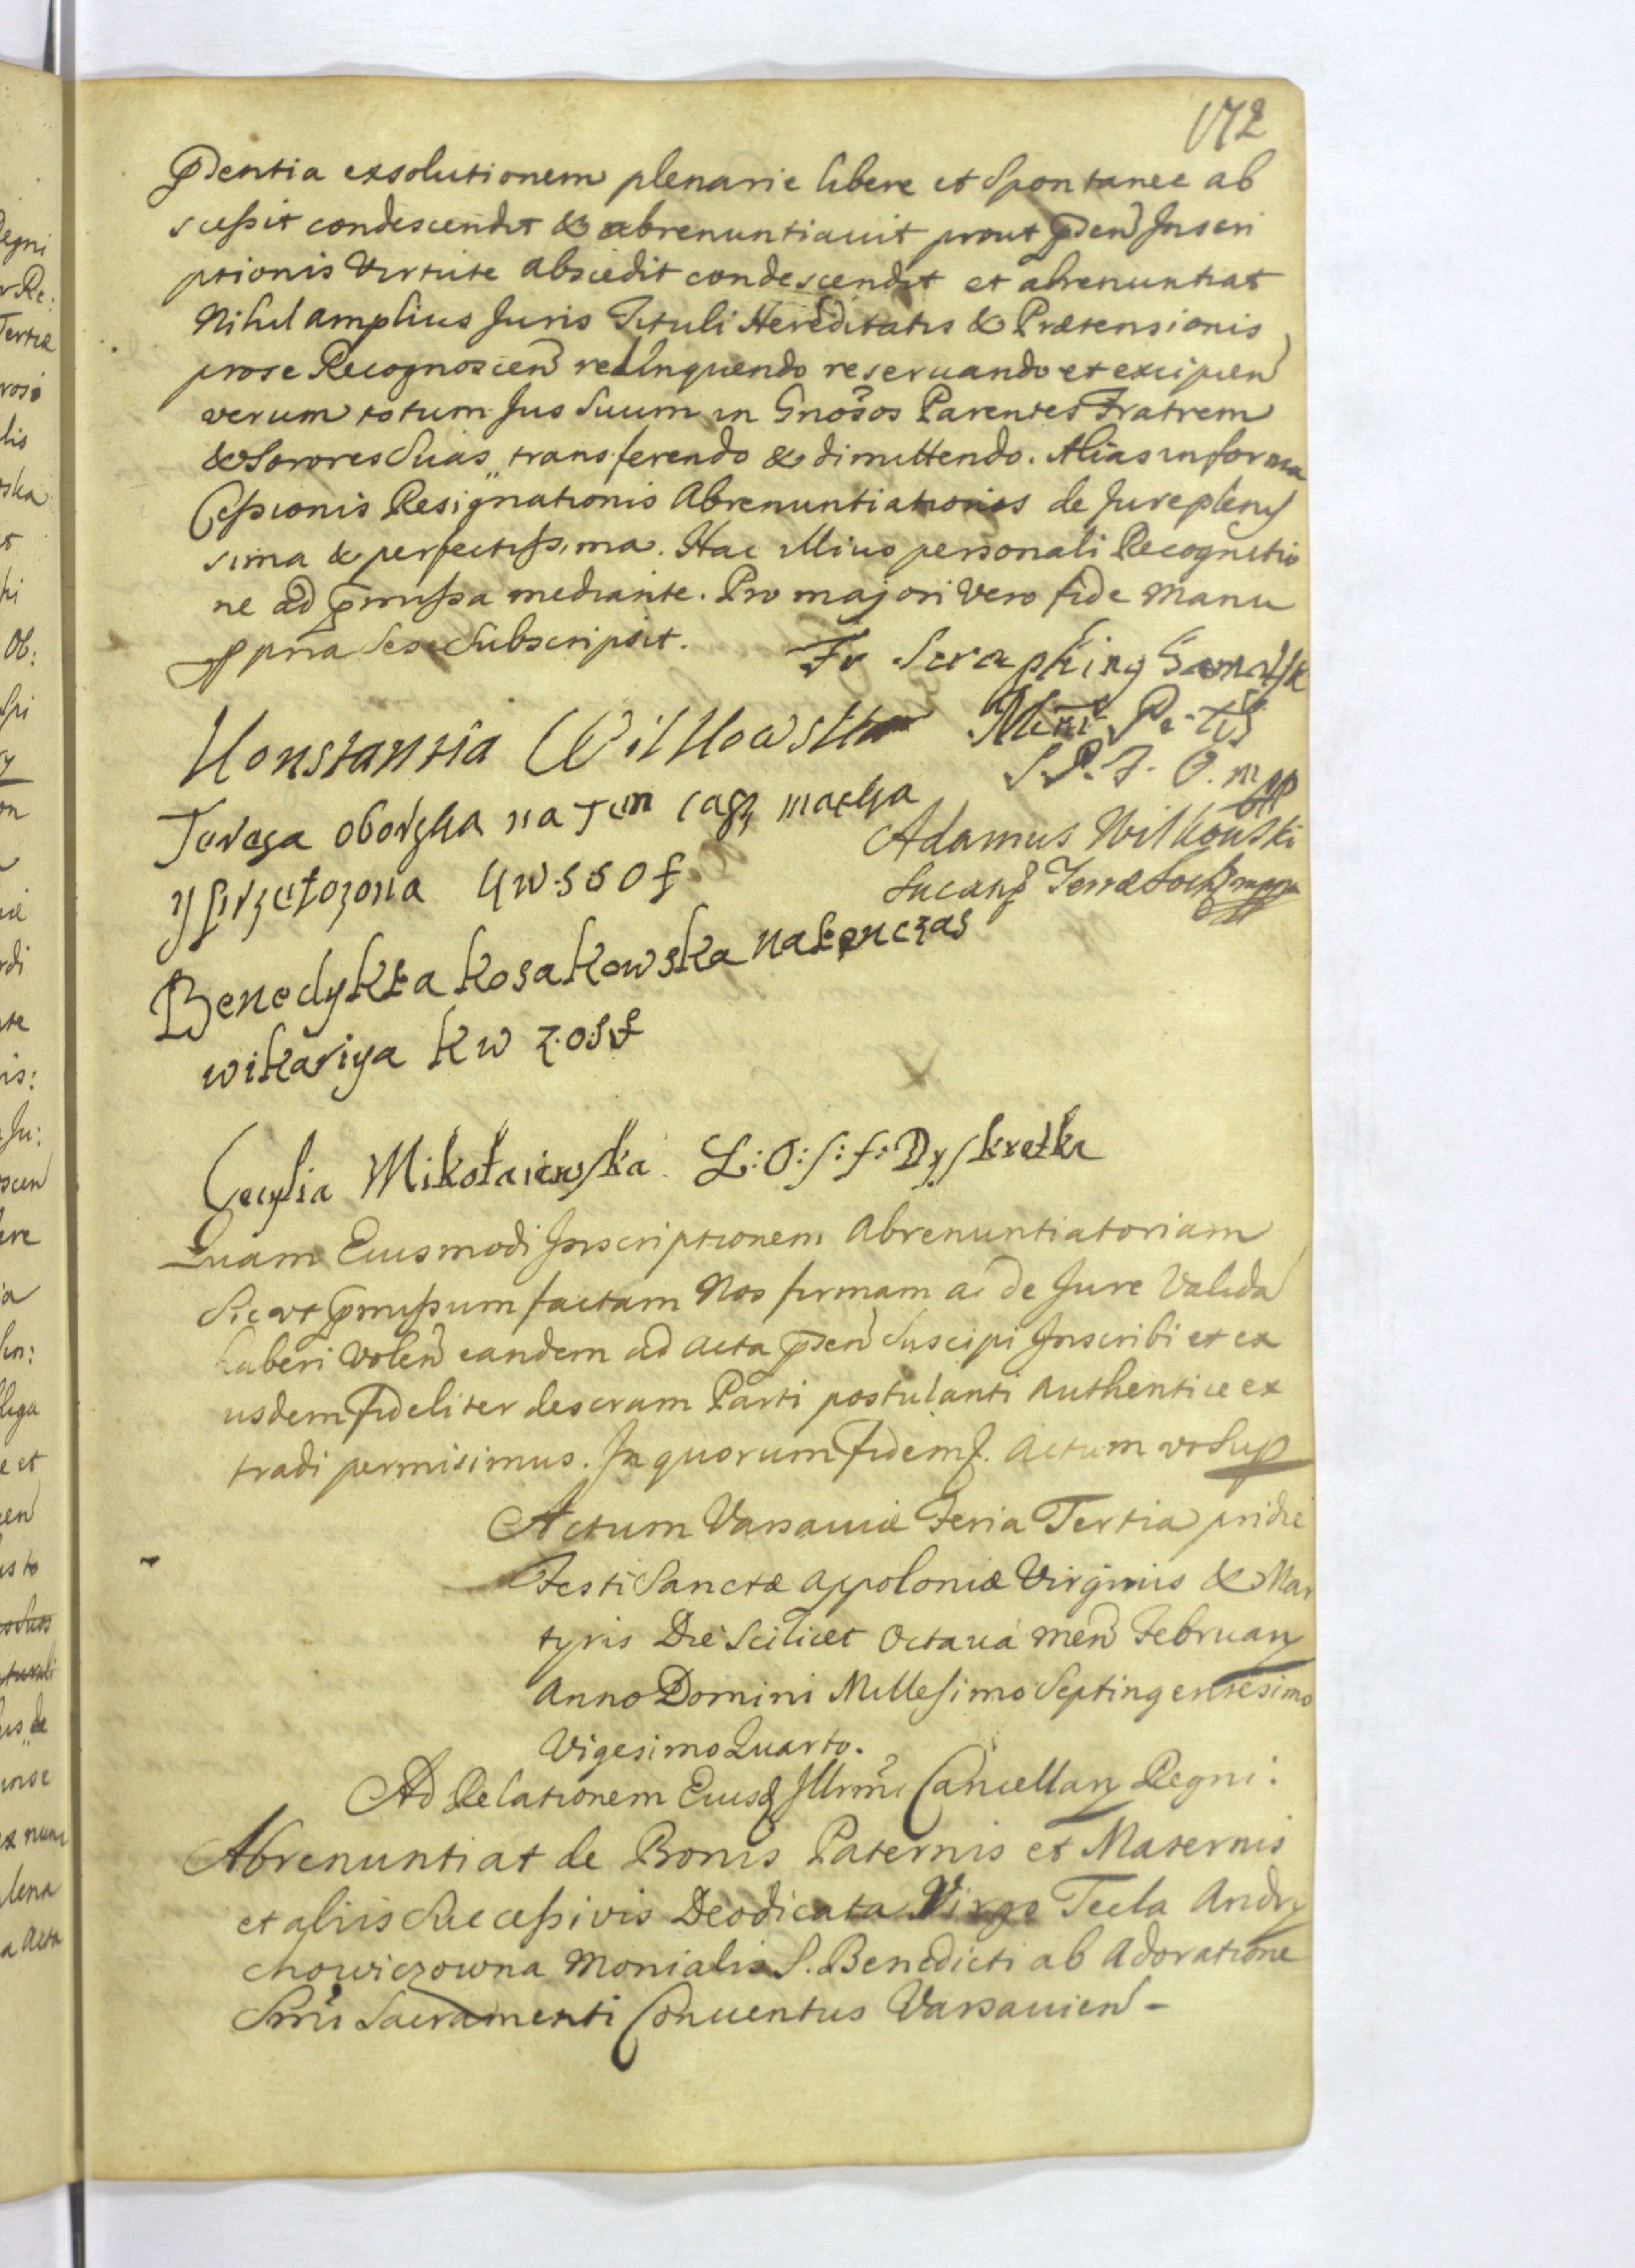 172
Pdentia exsolutionem plenarie libere et Spontanee ab
scessit condescendit & abrenuntiavit prout pden Inscri
ptionis Virtute abscedit condescendit et abrenuntiat
Nihil amplius Juris Tituli Hereditatis & Prætensionis
prose Recognoscen relinquendo reservando et excipien
verum totum Jus Suum in Gnosos Parentes Fratrem
& Sorores Suas transferendo & dimittendo. Alias in forma
Cessionis Resignationis Abrenuntiationis de Jure plenis
sima & perfectissima. Hac illius personali Recognitio
ne ad pmissa mediante. Pro majori Vero fide Manu
ppria Sese Subscripsit.
Fr Seraphing
Konstantia Wilkowska
S. P. F. O. mpp
Teresa oborska na ten czas matka
y przełozona
Adamus Wilkowski
Benedykta kosakowska natenczas
wikariya K w Z. O S F
Cecylia Mikołaiewska Z: O: S: F: Dyskretka
Quam Eiusmodi Inscriptionem Abrenuntiatoriam
Sicut pmissum factam Nos firmam ac de Jure Valida
haberi volen eandem ad Acta pden Suscipi Inscribi et ex
iisdem fideliter descram Parti postulanti Authentice ex
tradi permisimus. In quorum fidem. Actum ut Sup
Actum Varsaviæ Feria Tertia pridie
Festi Sanctæ Appoloniæ Virginis & Mar
tyris Die Scilicet Octava men Februarij
Anno Domini Millesimo Septingentesimo
Vigesimo Quarto.
Ad Relationem Eiusd Illrmi Cancellarij Regni.
Abrenuntiat de Bonis Paternis et Maternis
et aliis Successivis Deodicata Virgo Tecla Andry
chowiczowna Monialis S. Benedicti ab Adoratione
Smi Sacramenti Conventus Varsavien -